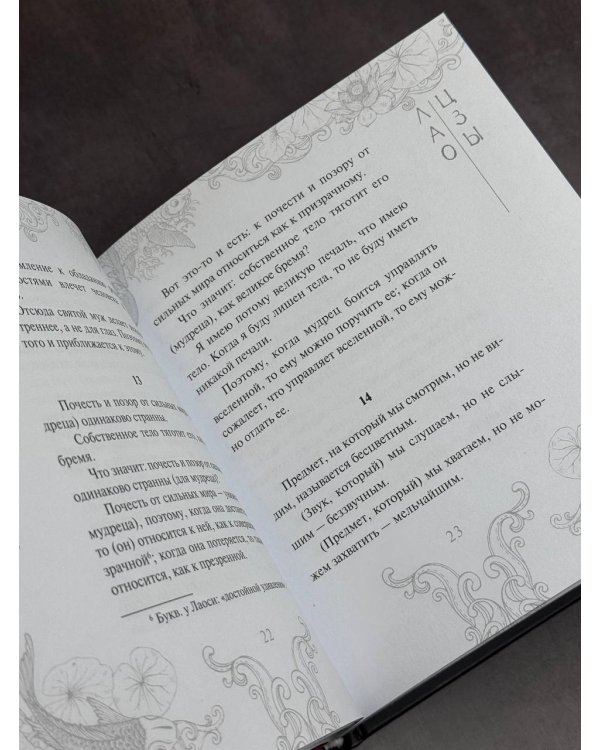 к обладанию
влечет
Отсюда святой муж делает
а не для глаз.
того и приближается к этому.
13
Почесть и позор от сильных
дреца) одинаково странны.
Собственное тело тяготит
бремя.
Что значит: почесть и позор от
одинаково странны (для мудреца)?
Почесть от сильных мира –
мудреца), поэтому, когда она
то (он) относится к ней, как к
зрачной⁶; когда она потеряется, то
относится, как к презренной.
⁶ Букв. у Лаоси: «достойной удивления
22
ЛАО
ЦЗЫ
Вот это-то и есть: к почести и позору от
сильных мира относиться как к призрачному.
Что значит: собственное тело тяготит его
(мудреца), как великое бремя?
Я имею потому великую печаль, что имею
тело. Когда я буду лишен тела, то не буду иметь
никакой печали.
Поэтому, когда мудрец боится управлять
вселенной, то ему можно поручить ее; когда он
сожалеет, что управляет вселенной, то ему мож-
но отдать ее.
14
Предмет, на который мы смотрим, но не ви-
дим, называется бесцветным.
(Звук, который) мы слушаем, но не слы-
шим — беззвучным.
(Предмет, который) мы хватаем, но не мо-
жем захватить — мельчайшим.
23